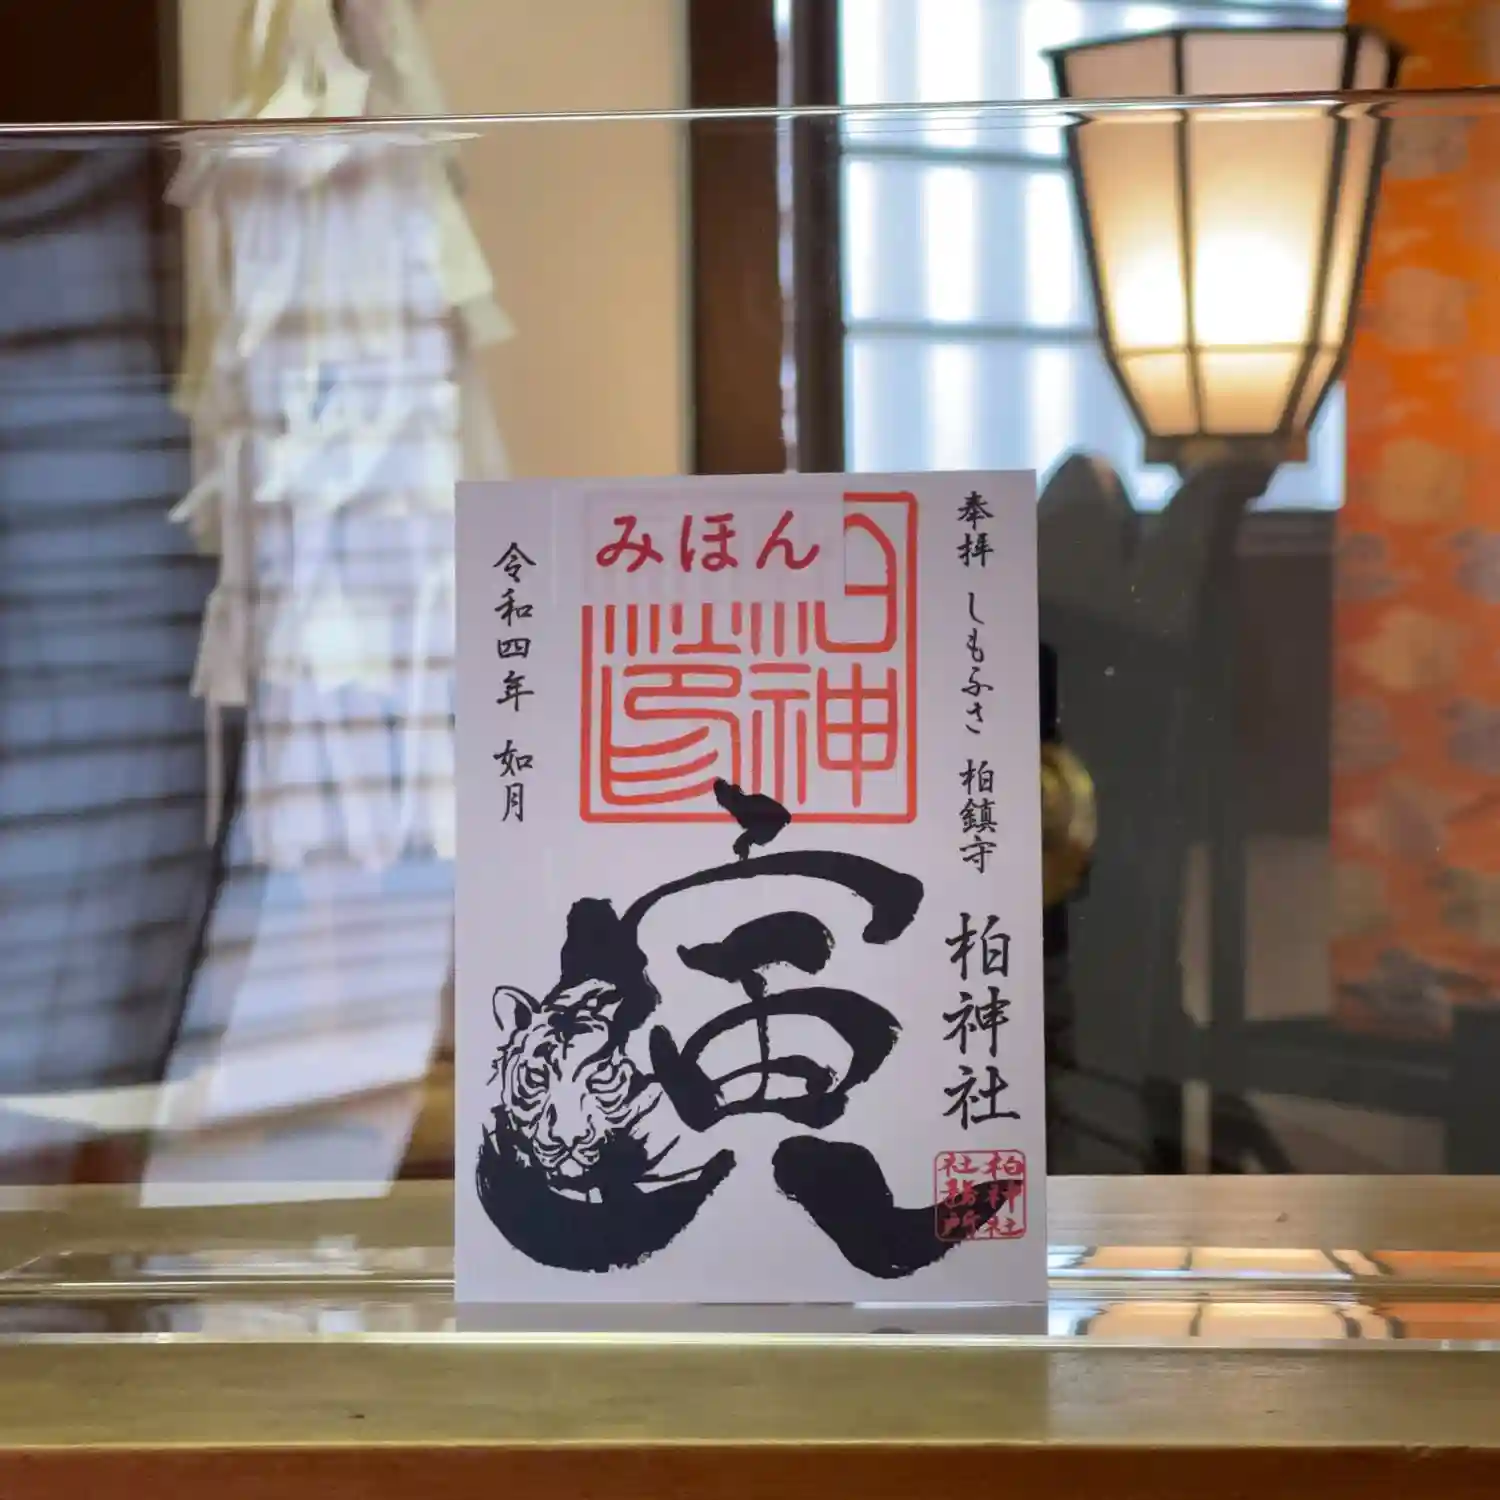 奉拝 しもふさ 柏鎮守 柏神社
みほん
寅
令和四年 如月
柏神社
社務所